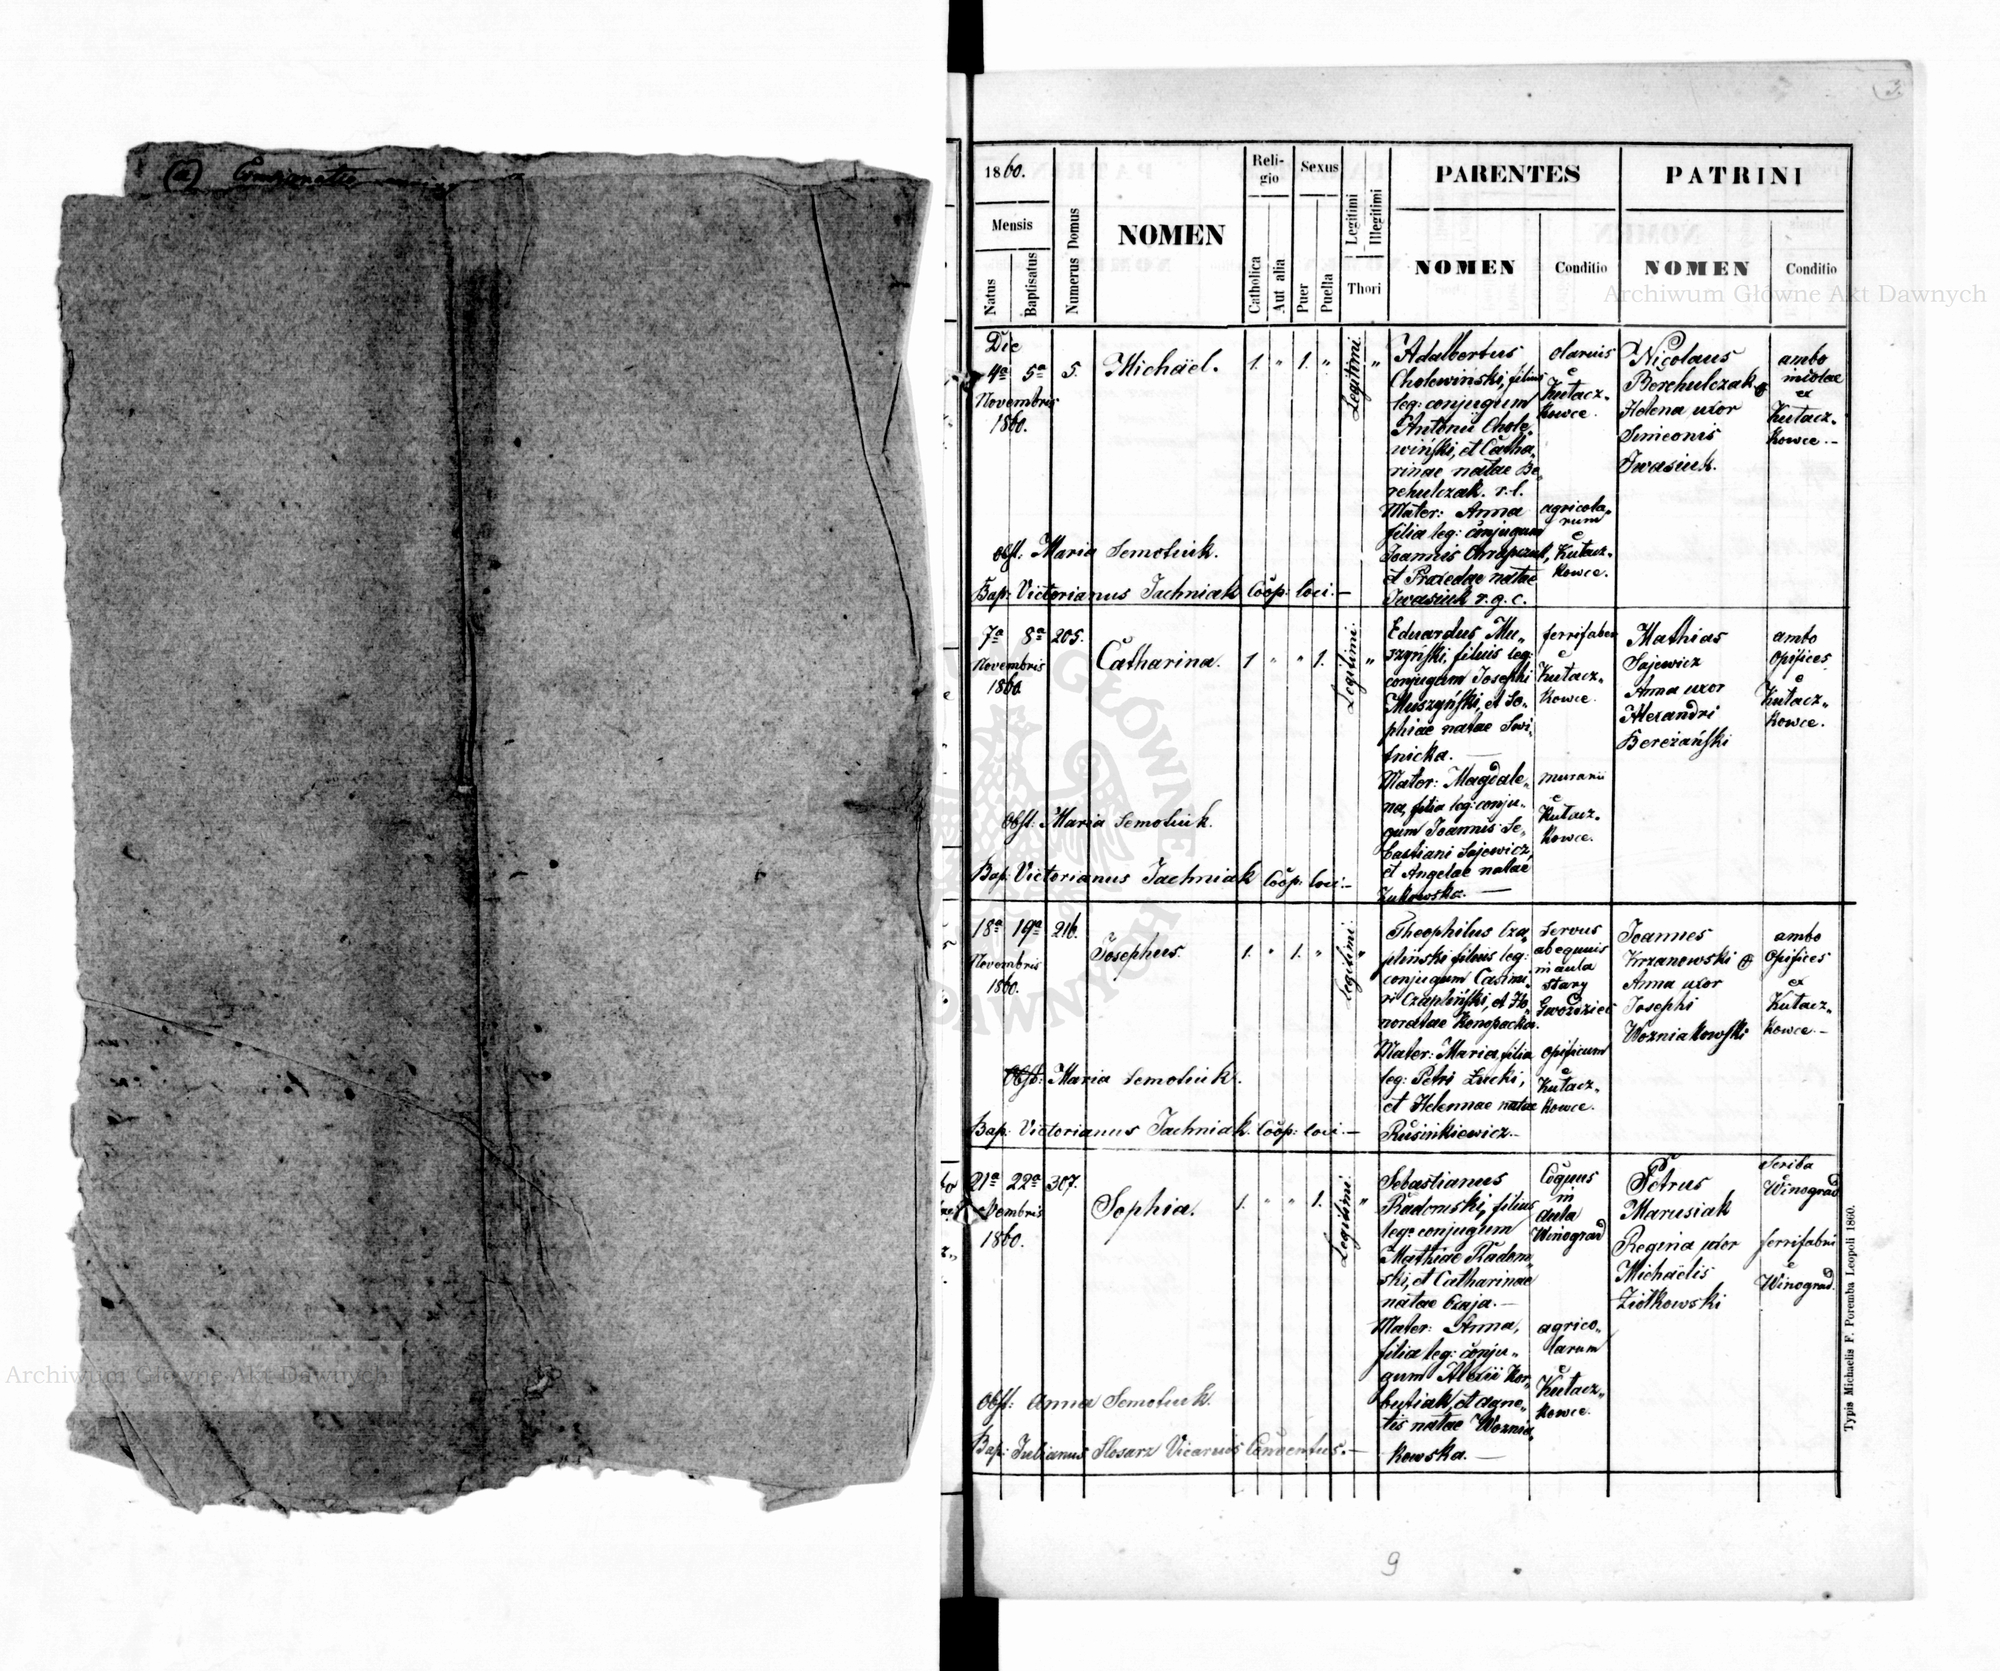 (a)
3.
1860.
Mensis
Natus
Baptisatus
Numerus Domus
NOMEN
Religio
Catholica
Aut alia
Sexus
Puer
Puella
Legitimi
Illegitimi
Thori
PARENTES
NOMEN
Conditio
PATRINI
NOMEN
Conditio
Archiwum Główne Akt Dawnych
Die
4ª 5ª 5. Michäel. 1. " 1. " Legitimi. "
Novembris
1860.
Adalbertus
Cholewiński, filius
leg: conjugum
Antonii Chole„
wiński, et Catha„
rinae natae Be„
rehulczak. r. l.
Mater: Anna
filia leg: conjugum
Joannis
et Praxedae natae
Iwasiuk r. g. c.
olarius
e
Kułacz„
kowce.
agricola„
rum
e
Kułacz„
kowce.
Nicolaus
Berehulczak et
Helena uxor
Simeonis
Iwasiuk.
ambo
incolae
ex
Kułacz„
kowce.–
Obst: Maria Semotiuk.
Bap: Victorianus Jachniak Coop: loci.–
7ª 8ª 205. Catharina. 1 " " 1. Legitimi. "
Novembris
1860.
Eduardus Mu„
szyński, filius leg:
conjugum Josephi
Muszyński, et So„
phiae natae Swi„
tnicka. —
Mater: Magdale„
na, filia leg: conju„
gum Joannis Se„
bastiani Sajewicz,
et Angelae natae
Żukowska. —
ferrifaber
e
Kułacz„
kowce.
murarii
e
Kułacz„
kowce.
Mathias
Sajewicz
Anna uxor
Alexandri
Bereżański
ambo
opifices
e
Kułacz„
kowce.
Obst: Maria Semotiuk.
Bap: Victorianus Jachniak Coop: loci.–
18ª 19ª 216. Josephus. 1. " 1. " Legitimi. "
Novembris
1860.
Theophilus Cza„
pliński filius leg:
conjugum Casimi„
ri Czapliński, et Ho„
noratae Konopacka.
Mater: Maria, filia
leg: Petri Łucki,
et Helennae natae
Rusinkiewicz.–
Servus
ab equis
in aula
stary
Gwoździec
opificum
e
Kułacz„
kowce.
Joannes
Krzanowski et
Anna uxor
Josephi
Wozniakowski
ambo
opifices
ex
Kułacz„
kowce.–
Obst: Maria Semotiuk.
Bap: Victorianus Jachniak. Coop: loci.–
21ª 22ª 307. Sophia. 1. " " 1. Legitimi. "
9bris
1860.
Sebastianus
Radomski, filius
leg: conjugum
Mathiae Radom„
ski, et Catharinae
natae Czaja.—
Mater: Anna,
filia leg: conju„
gum Alexii Kor„
butiak, et Agne„
tis natae Woznia„
kowska. —
Coquus
in
aula
Winograd
agrico„
larum
e
Kułacz„
kowce.
Petrus
Marusiak
Regina uxor
Michäelis
Ziółkowski
Scriba
Winograd
ferrifabri
e
Winograd.
Obst: Anna Semotiuk.
Bap: Julianus Slosarz Vicarius Conventus.—
Typis Michaelis F. Poremba Leopoli 1860.
9
Archiwum Główne Akt Dawnych